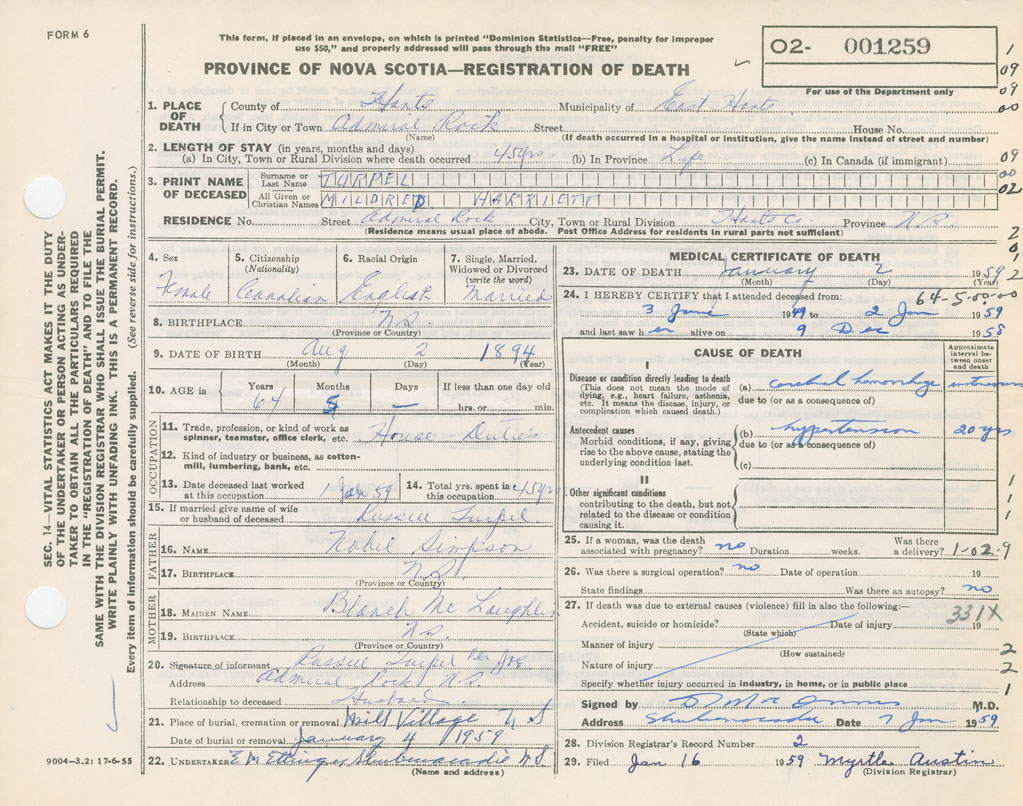 FORM 6
This form, if placed in an envelope, on which is printed "Dominion Statistics—Free, penalty for improper
use $50," and properly addressed will pass through the mail "FREE"
02- 001259
For use of the Department only
PROVINCE OF NOVA SCOTIA—REGISTRATION OF DEATH
1. PLACE OF DEATH
County of Hants Municipality of East Hants
If in City or Town Admiral Rock Street House No.
(Name) (If death occurred in a hospital or institution, give the name instead of street and number)
2. LENGTH OF STAY (in years, months and days)
(a) In City, Town or Rural Division where death occurred 45 yrs (b) In Province Life (c) In Canada (if immigrant)
3. PRINT NAME OF DECEASED
Surname or Last Name TURPEL
All Given or Christian Names MILDRED HARRIETT
RESIDENCE No. Street Admiral Rock City, Town or Rural Division Hants Co. Province N.S.
(Residence means usual place of abode. Post Office Address for residents in rural parts not sufficient)
4. Sex Female
5. Citizenship (Nationality) Canadian
6. Racial Origin English
7. Single, Married, Widowed or Divorced (write the word) Married
8. BIRTHPLACE N.S.
(Province or Country)
9. DATE OF BIRTH Aug 2 1894
(Month) (Day) (Year)
10. AGE in Years 64 Months 5 Days — If less than one day old hrs. or min.
OCCUPATION
11. Trade, profession, or kind of work as spinner, teamster, office clerk, etc. House-Duties
12. Kind of industry or business, as cotton-mill, lumbering, bank, etc.
13. Date deceased last worked at this occupation 1 Jan 59
14. Total yrs. spent in this occupation 45 yrs
15. If married give name of wife or husband of deceased Russell Turpel
FATHER
16. NAME Nobel Simpson
17. BIRTHPLACE N.S.
(Province or Country)
MOTHER
18. MAIDEN NAME Blanch McLaughlin
19. BIRTHPLACE N.S.
(Province or Country)
20. Signature of informant Russell Turpel Per
Address Admiral Rock N.S.
Relationship to deceased Husband
21. Place of burial, cremation or removal Mill Village N S
Date of burial or removal January 4 1959
22. UNDERTAKER E M Ettinger Shubenacadie N.S.
(Name and address)
MEDICAL CERTIFICATE OF DEATH
23. DATE OF DEATH January 2 1959
(Month) (Day) (Year)
64-5-00-00
24. I HEREBY CERTIFY that I attended deceased from:
3 June 1949 to 2 Jan 1959
and last saw her alive on 9 Dec 1958
CAUSE OF DEATH
Approximate interval between onset and death
I
Disease or condition directly leading to death
(This does not mean the mode of dying, e.g., heart failure, asthenia, etc. It means the disease, injury, or complication which caused death.)
(a) cerebral hemorrhage
due to (or as a consequence of)
Antecedent causes
Morbid conditions, if any, giving rise to the above cause, stating the underlying condition last.
(b) hypertension 20 yrs
due to (or as a consequence of)
(c)
II
Other significant conditions
contributing to the death, but not related to the disease or condition causing it.
25. If a woman, was the death associated with pregnancy? no Duration weeks. Was there a delivery?
1-02-9
26. Was there a surgical operation? no Date of operation 19
State findings Was there an autopsy? no
27. If death was due to external causes (violence) fill in also the following:—
331X
Accident, suicide or homicide? Date of injury 19
(State which)
Manner of injury
(How sustained)
Nature of injury
Specify whether injury occurred in industry, in home, or in public place
Signed by M.D.
Address Shubenacadie Date 7 Jan 1959
28. Division Registrar's Record Number 2
29. Filed Jan 16 1959 Myrtle Austin
(Division Registrar)
1
09
09
00
09
00
02
2
0
1
2
1
1
1
2
2
1
SEC. 14—VITAL STATISTICS ACT MAKES IT THE DUTY
OF THE UNDERTAKER OR PERSON ACTING AS UNDER-
TAKER TO OBTAIN ALL THE PARTICULARS REQUIRED
IN THE "REGISTRATION OF DEATH" AND TO FILE THE
SAME WITH THE DIVISION REGISTRAR WHO SHALL ISSUE THE BURIAL PERMIT.
WRITE PLAINLY WITH UNFADING INK. THIS IS A PERMANENT RECORD.
Every item of information should be carefully supplied. (See reverse side for instructions.)
9004-3.2: 17-6-55